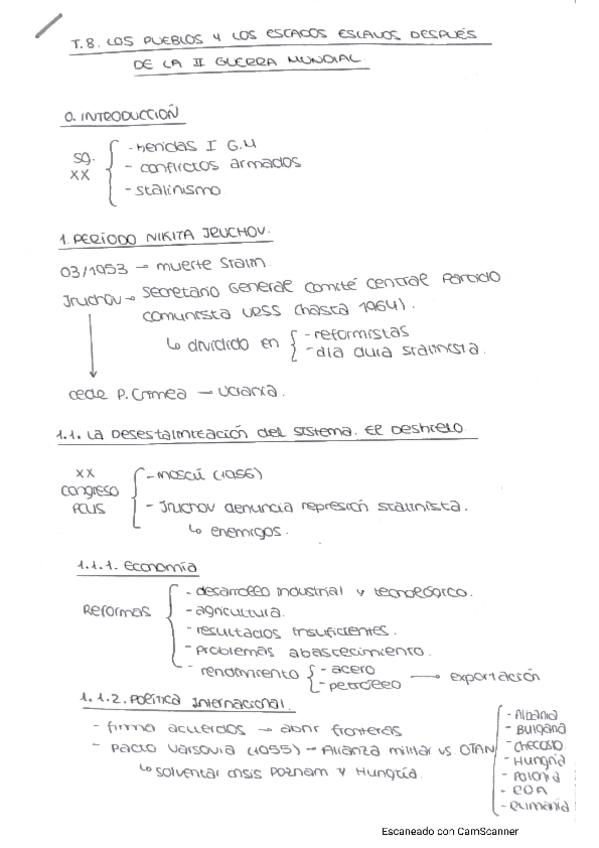 T.8. LOS PUEBLOS Y LOS ESTADOS ESLAVOS DESPUÉS
DE LA II GUERRA MUNDIAL.
0. INTRODUCCIÓN
sg. XX
- heridas I G.M
- conflictos armados
- stalinismo
1. PERÍODO NIKITA JRUCHOV.
03/1953 → muerte Stalin.
Jruchov → Secretario General Comité Central Partido
Comunista URSS (hasta 1964).
↳ dividido en
- reformistas
- día dura stalinista.
cede P. Crimea — Ucrania.
1.1. La Desestalinización del Sistema. El Deshielo
XX congreso PCUS
- Moscú (1956)
- Jruchov denuncia represión stalinista.
↳ enemigos.
1.1.1. Economía
Reformas
- desarrollo industrial y tecnológico.
- agricultura.
- resultados insuficientes.
- problemas abastecimiento.
- rendimiento
- acero
- petróleo
→ exportación
1.1.2. Política Internacional.
- firma acuerdos → abrir fronteras
- Pacto Varsovia (1955) — Alianza militar vs OTAN
- Albania
- Bulgaria
- Checoslo
- Hungría
- Polonia
- RDA
- Rumanía
↳ solventar crisis Poznam y Hungría.
Escaneado con CamScanner